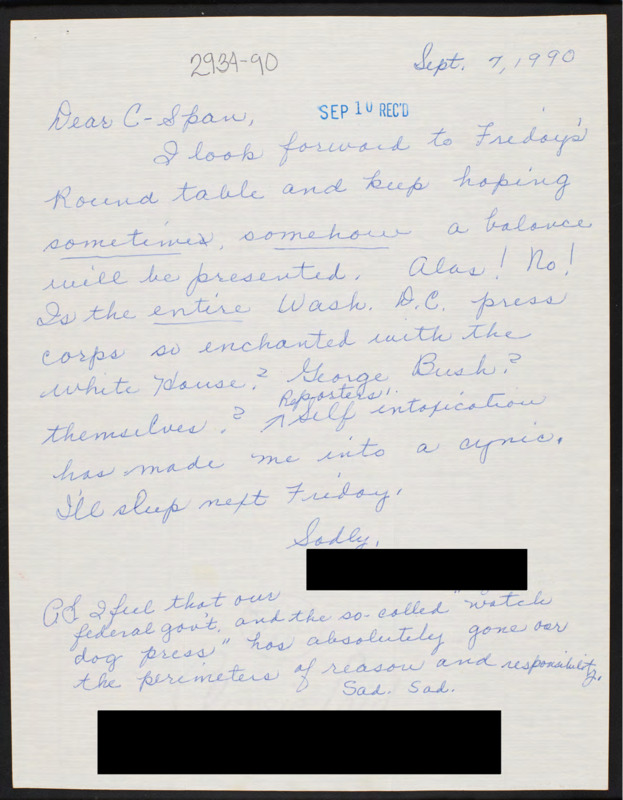 2934-90
Sept. 7, 1990
SEP 10 REC'D
Dear C-Span,
I look forward to Friday's
Round table and keep hoping
sometimes, somehow a balance
will be presented. Alas! No!
Is the entire Wash. D.C. press
corps so enchanted with the
White House? George Bush?
Reporters'
themselves? Self intoxication
has made me into a cynic.
I'll sleep next Friday.
Sadly,
PS I feel that our
federal gov't. and the so-called "watch
dog press" has absolutely gone over
the perimeters of reason and responsibility.
Sad. Sad.